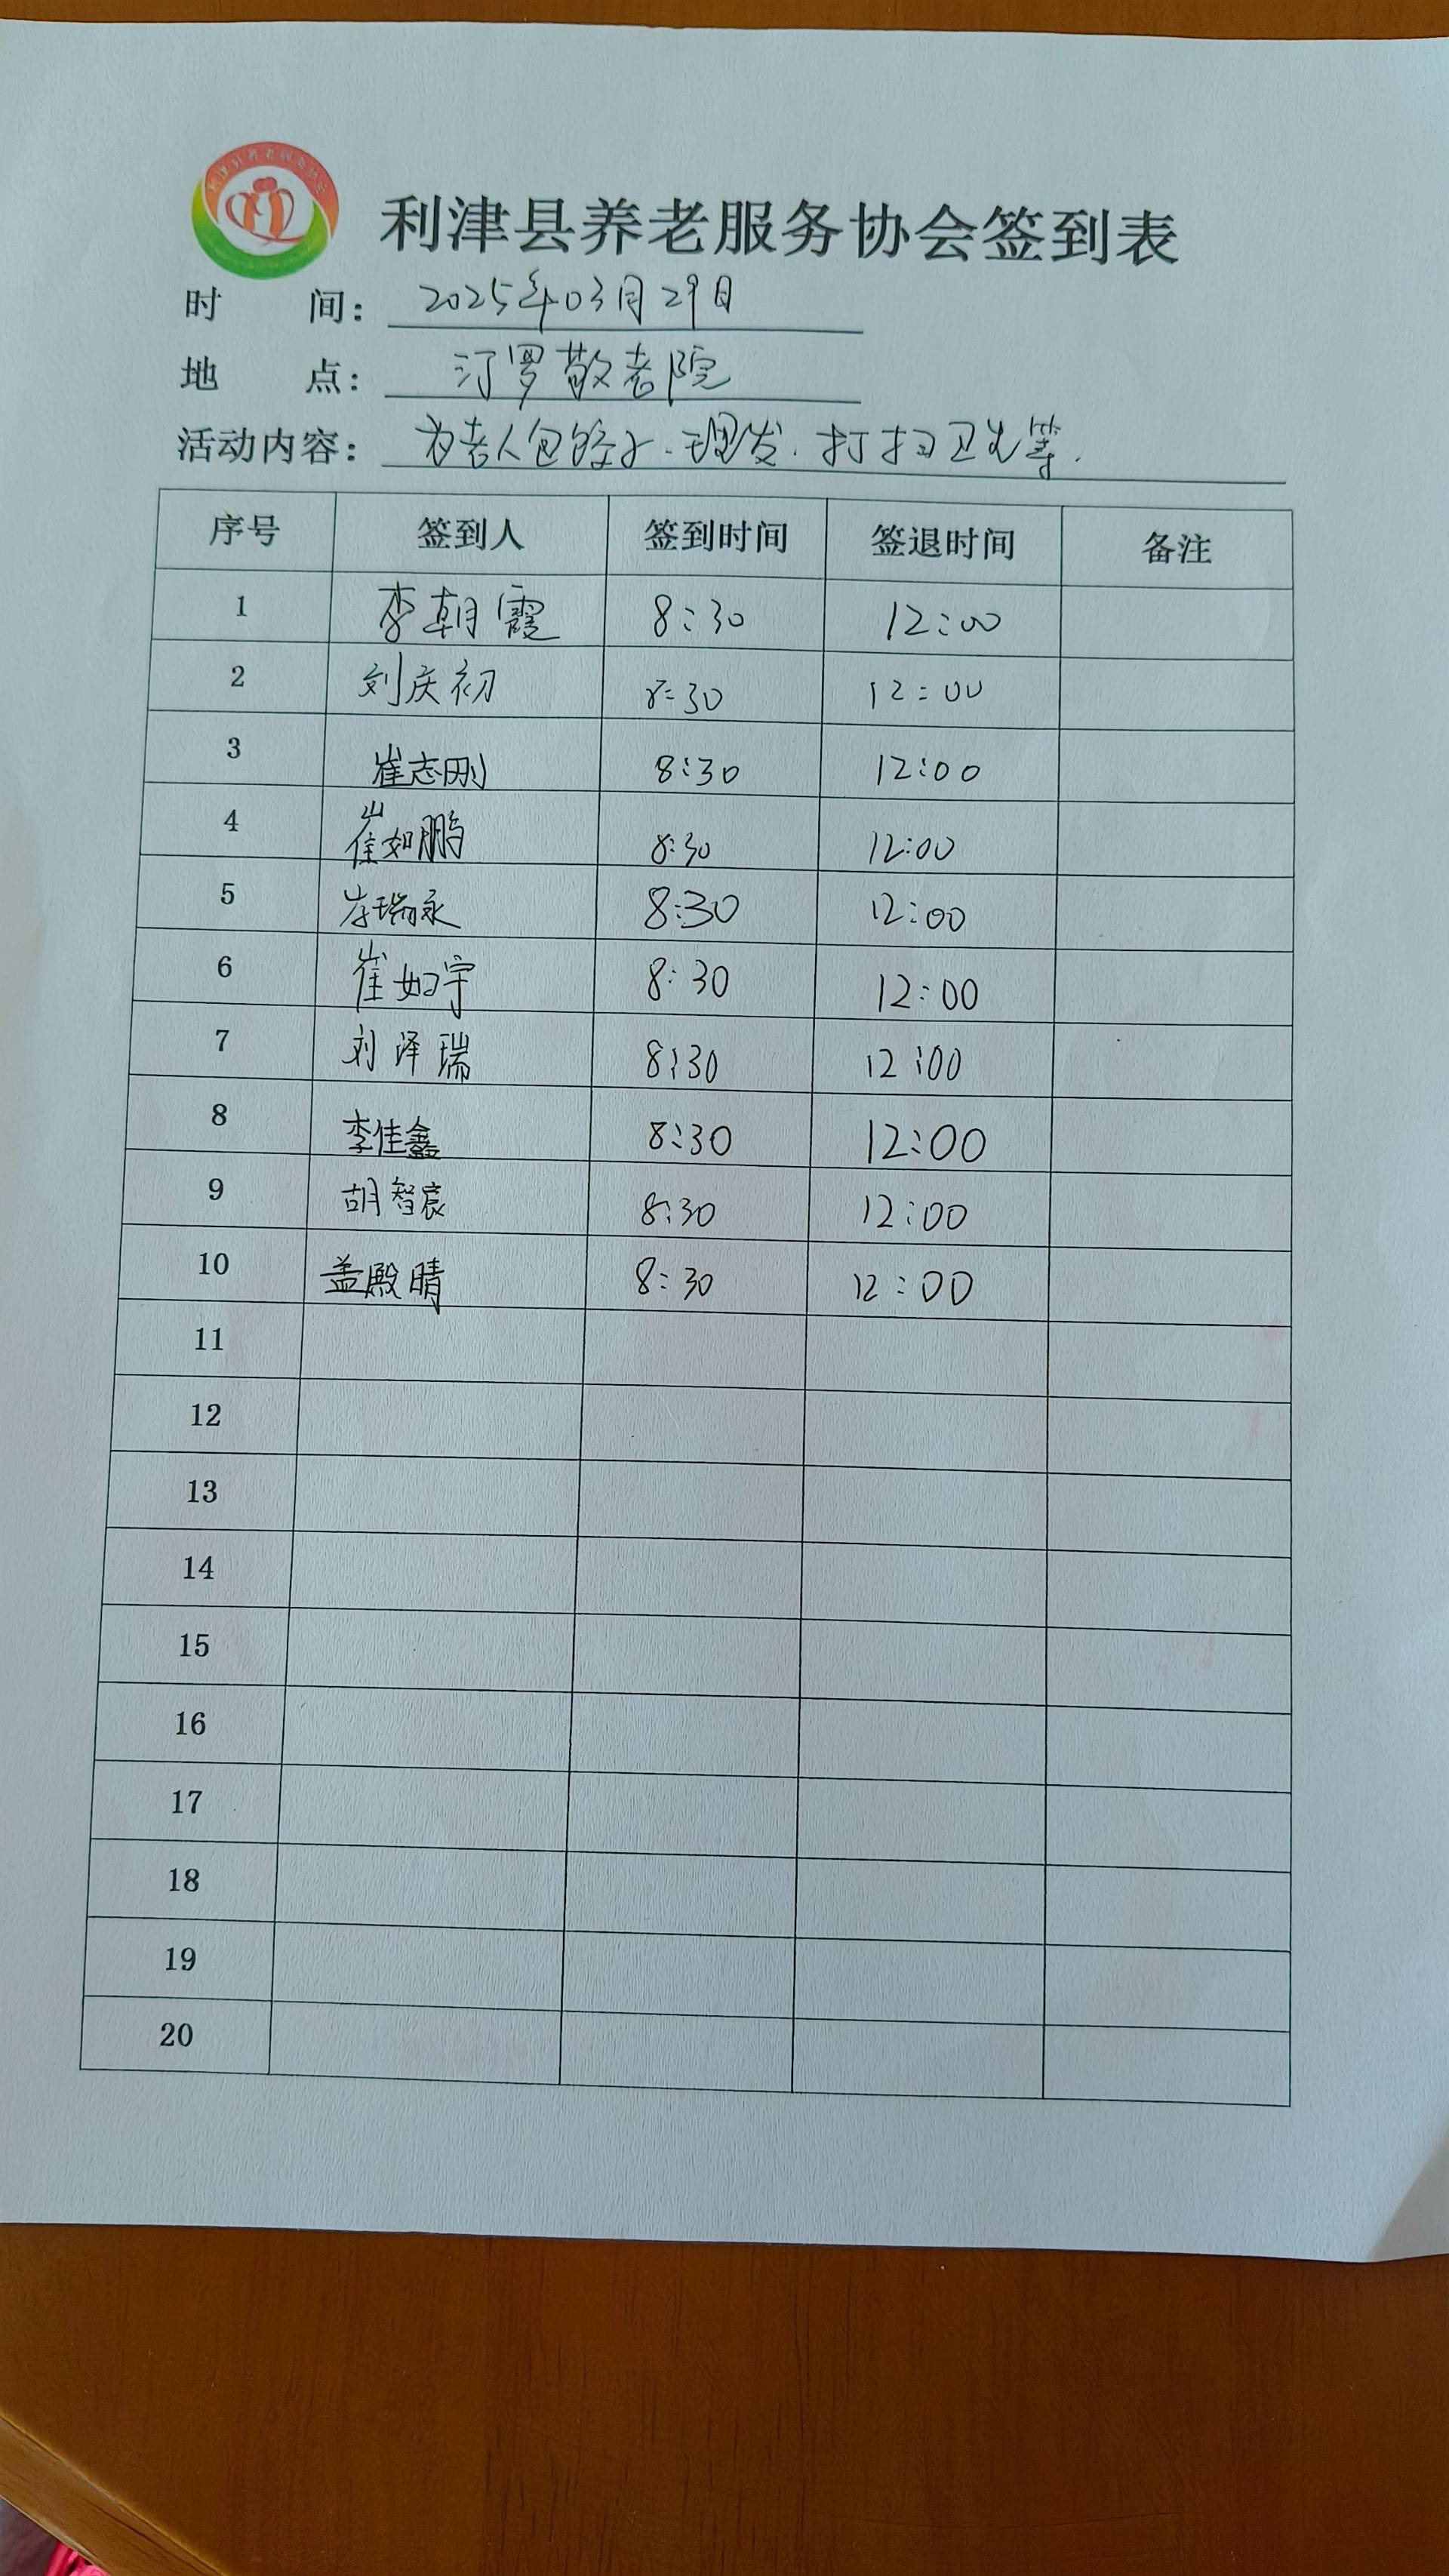 利津县养老服务协会
利津县养老服务协会签到表
时 间: 2025年03月29日
地 点: 汀罗敬老院
活动内容: 为老人包饺子、理发、打扫卫生等.
序号 签到人 签到时间 签退时间 备注
1 李朝霞 8:30 12:00
2 刘庆初 8:30 12:00
3 崔志刚 8:30 12:00
4 崔如鹏 8:30 12:00
5 岑瑞永 8:30 12:00
6 崔如宇 8:30 12:00
7 刘泽瑞 8:30 12:00
8 李佳鑫 8:30 12:00
9 胡智宸 8:30 12:00
10 盖殿晴 8:30 12:00
11
12
13
14
15
16
17
18
19
20